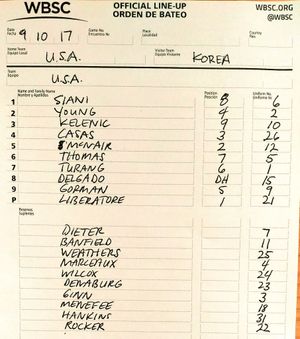 WBSC OFFICIAL LINE-UP WBSC.ORG
ORDEN DE BATEO @WBSC
Date Fecha 9 10 17 Game No. Encuentro № Place Localidad Country País
Home Team Equipo Local U.S.A. Visitor Team Equipo Visitante KOREA
Team Equipo U.S.A.
Name and Family Name Nombre y Apellidos Position Posición Uniform No. Uniforme №
1 SIANI 8 6
2 YOUNG 4 2
3 KELENIC 9 10
4 CASAS 3 26
5 MCNAIR 2 12
6 THOMAS 7 5
7 TURANG 6 1
8 DELGADO DH 15
9 GORMAN 5 9
P LIBERATORE 1 21
Reserves Suplentes
DIETER 7
BANFIELD 11
WEATHERS 25
MARCEAUX 4
WILCOX 24
DENABURG 23
GINN 3
MENEFEE 18
HANKINS 31
ROCKER 22